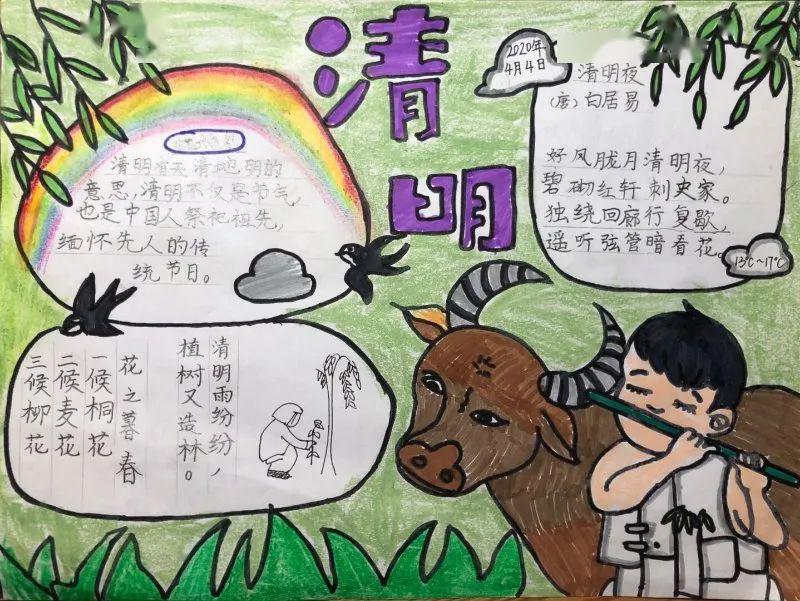 清明
2020年
4月4日
清明有天清地明的
意思，清明不仅是节气，
也是中国人祭祀祖先，
缅怀先人的传
统节日。
清明夜
(唐)白居易
好风胧月清明夜，
碧砌红轩刺史家。
独绕回廊行复歇，
遥听弦管暗看花。
13℃~17℃
清明雨纷纷，
植树又造林。
花之暮春
一候桐花
二候麦花
三候柳花